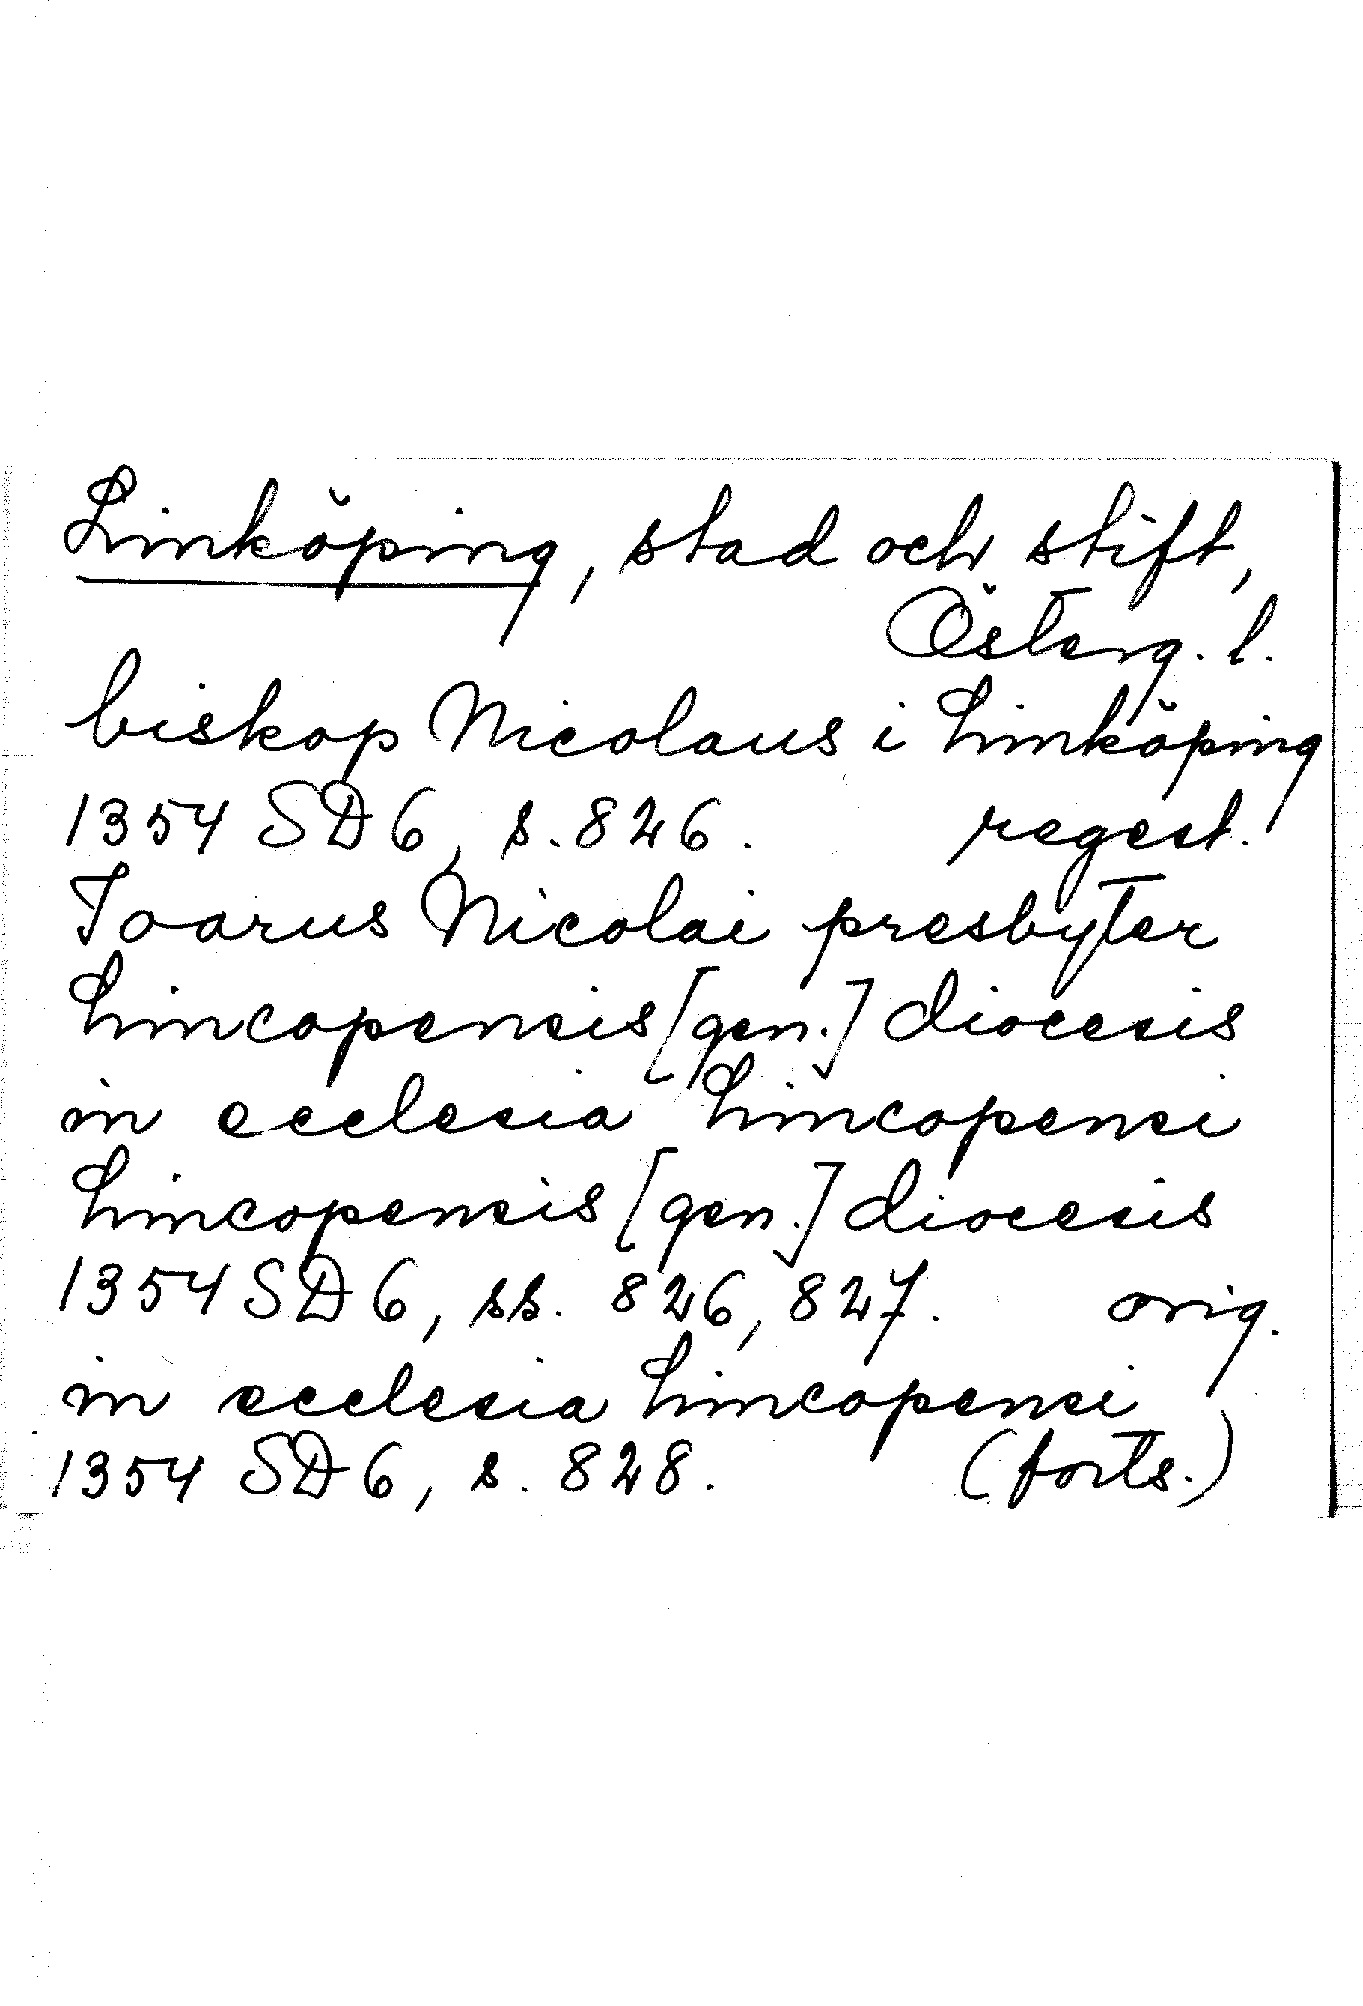 Linköping, stad och stift,
Österg. l.
biskop Nicolaus i Linköping
1354 SD 6, s. 826. regest.
Joarus Nicolai presbyter
Lincopensis [gen.] diocesis
in ecclesia Lincopensi
Lincopensis [gen.] diocesis
1354 SD 6, ss. 826, 827. orig.
in ecclesia Lincopensi
1354 SD 6, s. 828. (forts.)